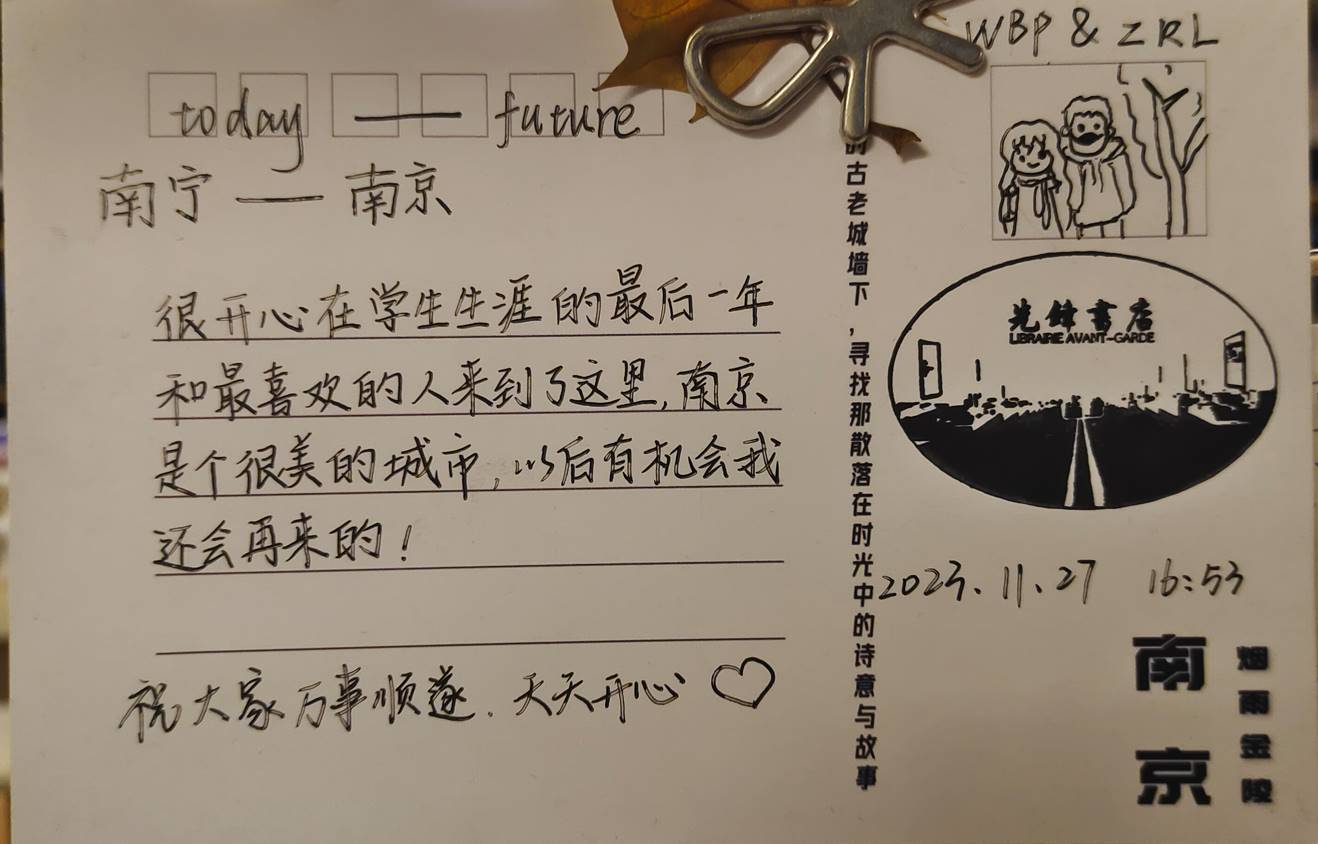 WBP & ZRL
today — future
南宁 — 南京
很开心在学生生涯的最后一年
和最喜欢的人来到了这里,南京
是个很美的城市,以后有机会我
还会再来的!
祝大家万事顺遂.天天开心♡
的古老城墙下,寻找那散落在时光中的诗意与故事
先锋書店
LIBRAIRIE AVANT-GARDE
2023.11.27 16:53
南京
烟雨金陵